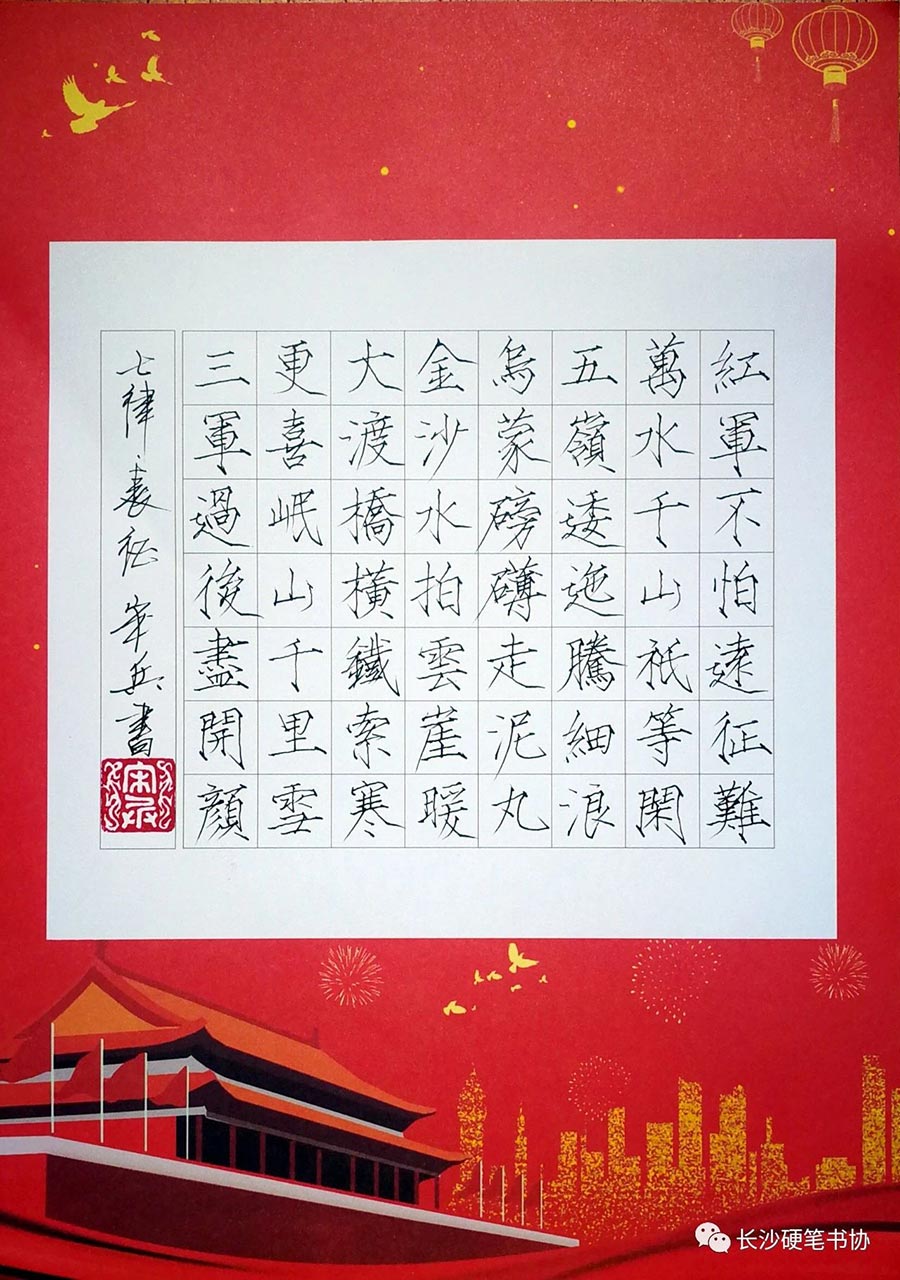 紅軍不怕遠征難
萬水千山祇等閑
五嶺逶迤騰細浪
烏蒙磅礴走泥丸
金沙水拍雲崖暖
大渡橋橫鐵索寒
更喜岷山千里雪
三軍過後盡開顏
七律·長征 兵書
长沙硬笔书协